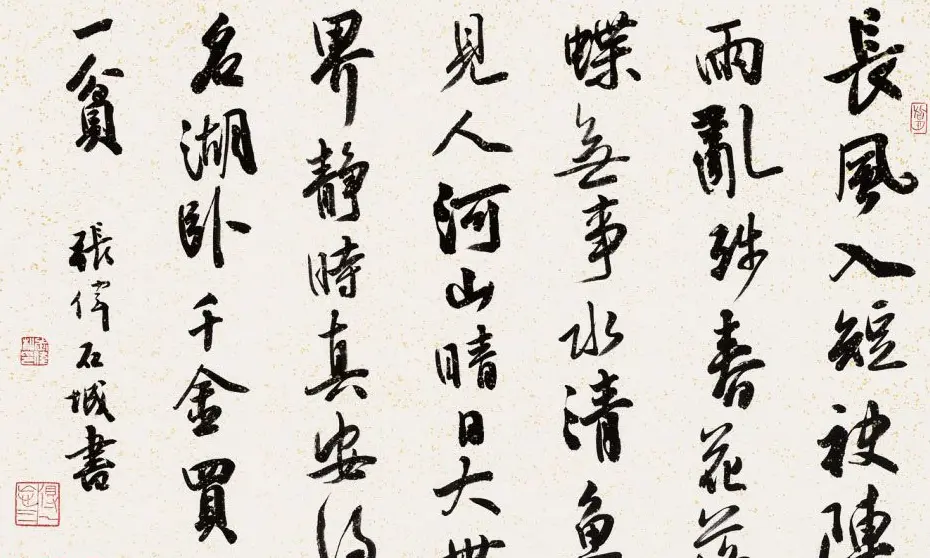 長風入短袂陳
雨亂殊春花落
蝶無事水清魚
見人河山晴日大世
界静時真安得
名湖卧千金買
一貧
張偉石城書